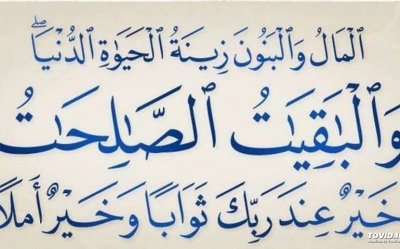 ٱلْمَالُ وَٱلْبَنُونَ زِينَةُ ٱلْحَيَوٰةِ ٱلدُّنْيَا ۖ
وَٱلْبَٰقِيَٰتُ ٱلصَّٰلِحَٰتُ
خَيْرٌ عِندَ رَبِّكَ ثَوَابًا وَخَيْرٌ أَمَلًا